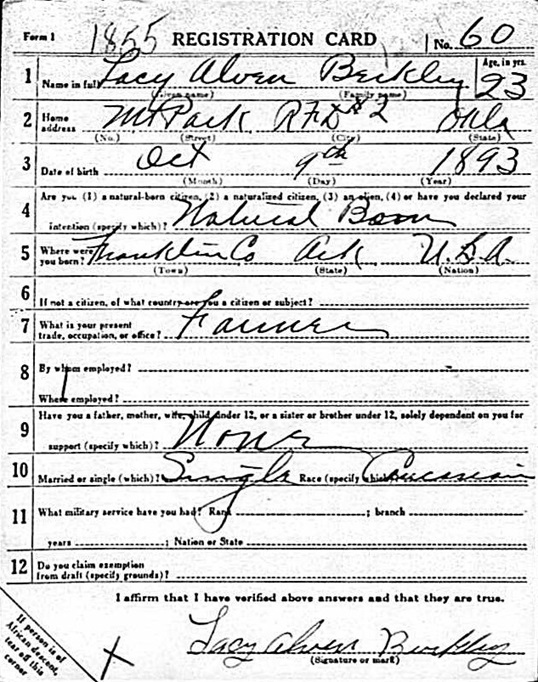 Form 1 1855 REGISTRATION CARD No. 60
1 Name in full Lacy Alven Berkley Age, in yrs. 23
(Given name) (Family name)
2 Home address Mt Park RFD #2 Okla
(No.) (Street) (City) (State)
3 Date of birth Oct 9th 1893
(Month) (Day) (Year)
4 Are you (1) a natural-born citizen, (2) a naturalized citizen, (3) an alien, (4) or have you declared your
intention (specify which)? Natural Born
5 Where were you born? Franklin Co Ark U.S.A.
(Town) (State) (Nation)
6 If not a citizen, of what country are you a citizen or subject?
7 What is your present trade, occupation, or office? Farmer
8 By whom employed?
Where employed?
9 Have you a father, mother, wife, child under 12, or a sister or brother under 12, solely dependent on you for
support (specify which)? None
10 Married or single (which)? Single Race (specify which)? Caucasian
11 What military service have you had? Rank ; branch
years ; Nation or State
12 Do you claim exemption
from draft (specify grounds)?
I affirm that I have verified above answers and that they are true.
If person is of
African descent,
tear off this
corner
X
Lacy Alven Berkley
(Signature or mark)